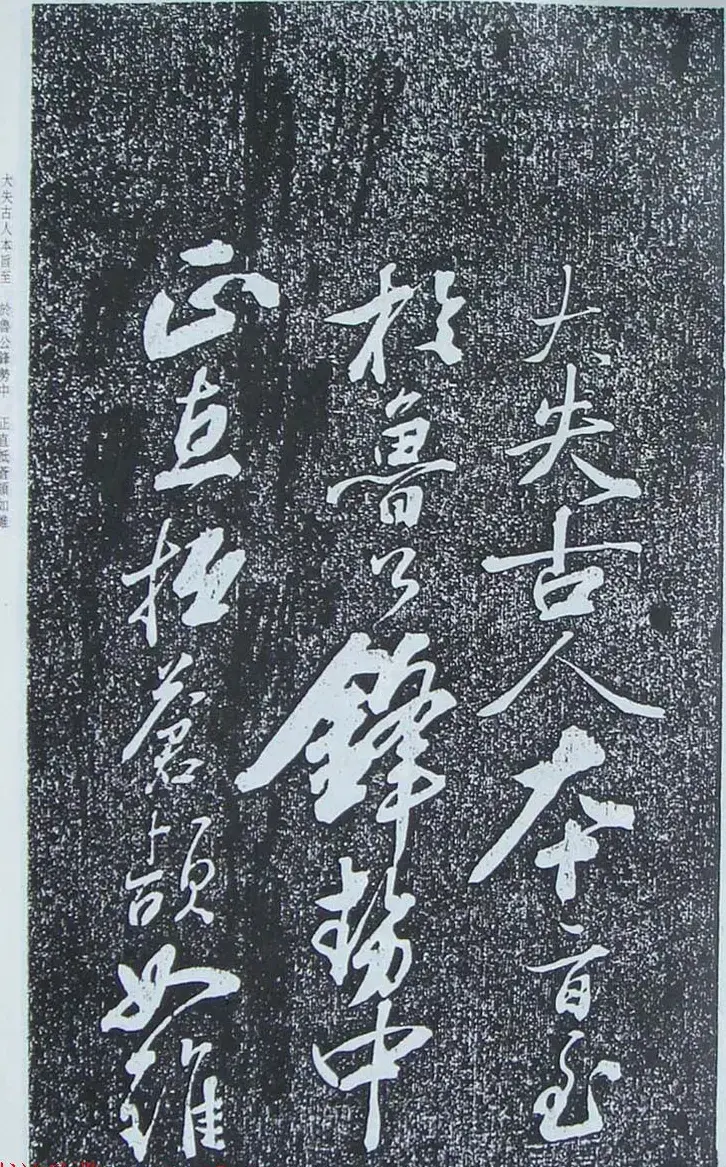 大失古人本旨至
於魯公鋒勢中
正直抵蒼頡如錐
大失古人本旨至 於魯公鋒勢中 正直抵蒼頡如錐